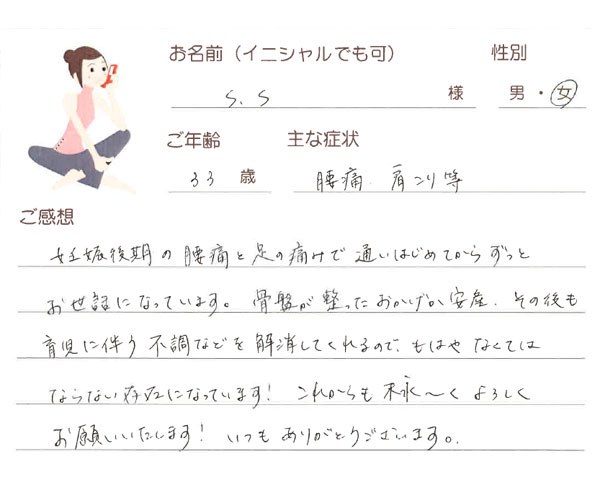 お名前（イニシャルでも可） 性別
S.S 様 男・女
ご年齢 主な症状
33 歳 腰痛、肩こり等
ご感想
妊娠後期の腰痛と足の痛みで通いはじめてからずっと
お世話になっています。骨盤が整ったおかげか安産、その後も
育児に伴う不調などを解消してくれるので、もはやなくては
ならない存在になっています！これからも末永〜くよろしく
お願いいたします！いつもありがとうございます。